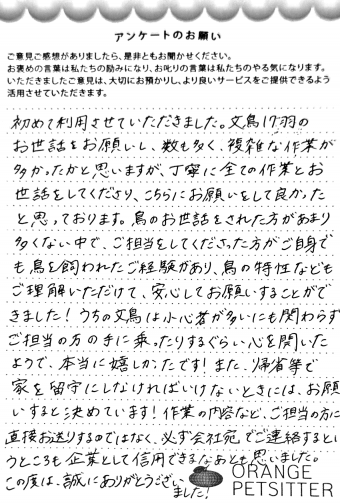 アンケートのお願い
ご意見ご感想がありましたら、是非ともお聞かせください。
お褒めの言葉は私たちの励みになり、お叱りの言葉は私たちのやる気になります。
いただきましたご意見は、大切にお預かりし、より良いサービスをご提供できるよう
活用させていただきます。
初めて利用させていただきました。文鳥17羽の
お世話をお願いし、数も多く、複雑な作業が
多かったかと思いますが、丁寧に全ての作業とお
世話をしてくださり、こちらにお願いをして良かった
と思っております。鳥のお世話をされた方があまり
多くない中で、ご担当をしてくださった方がご自身で
も鳥を飼われたご経験があり、鳥の特性なども
ご理解いただけて、安心してお願いすることがで
きました!うちの文鳥は小心者が多いにも関わらず
ご担当の方の手に乗ったりするぐらい心を開いた
ようで、本当に嬉しかったです!また、帰省等で
家を留守にしなければいけないときには、お願
いすると決めています!作業の内容など、ご担当の方に
直接お送りするのではなく、必ず会社宛でご連絡するとい
うところも企業として信用できるなあとも思いました。
この度は、誠にありがとうござい
ました!
ORANGE
PETSITTER